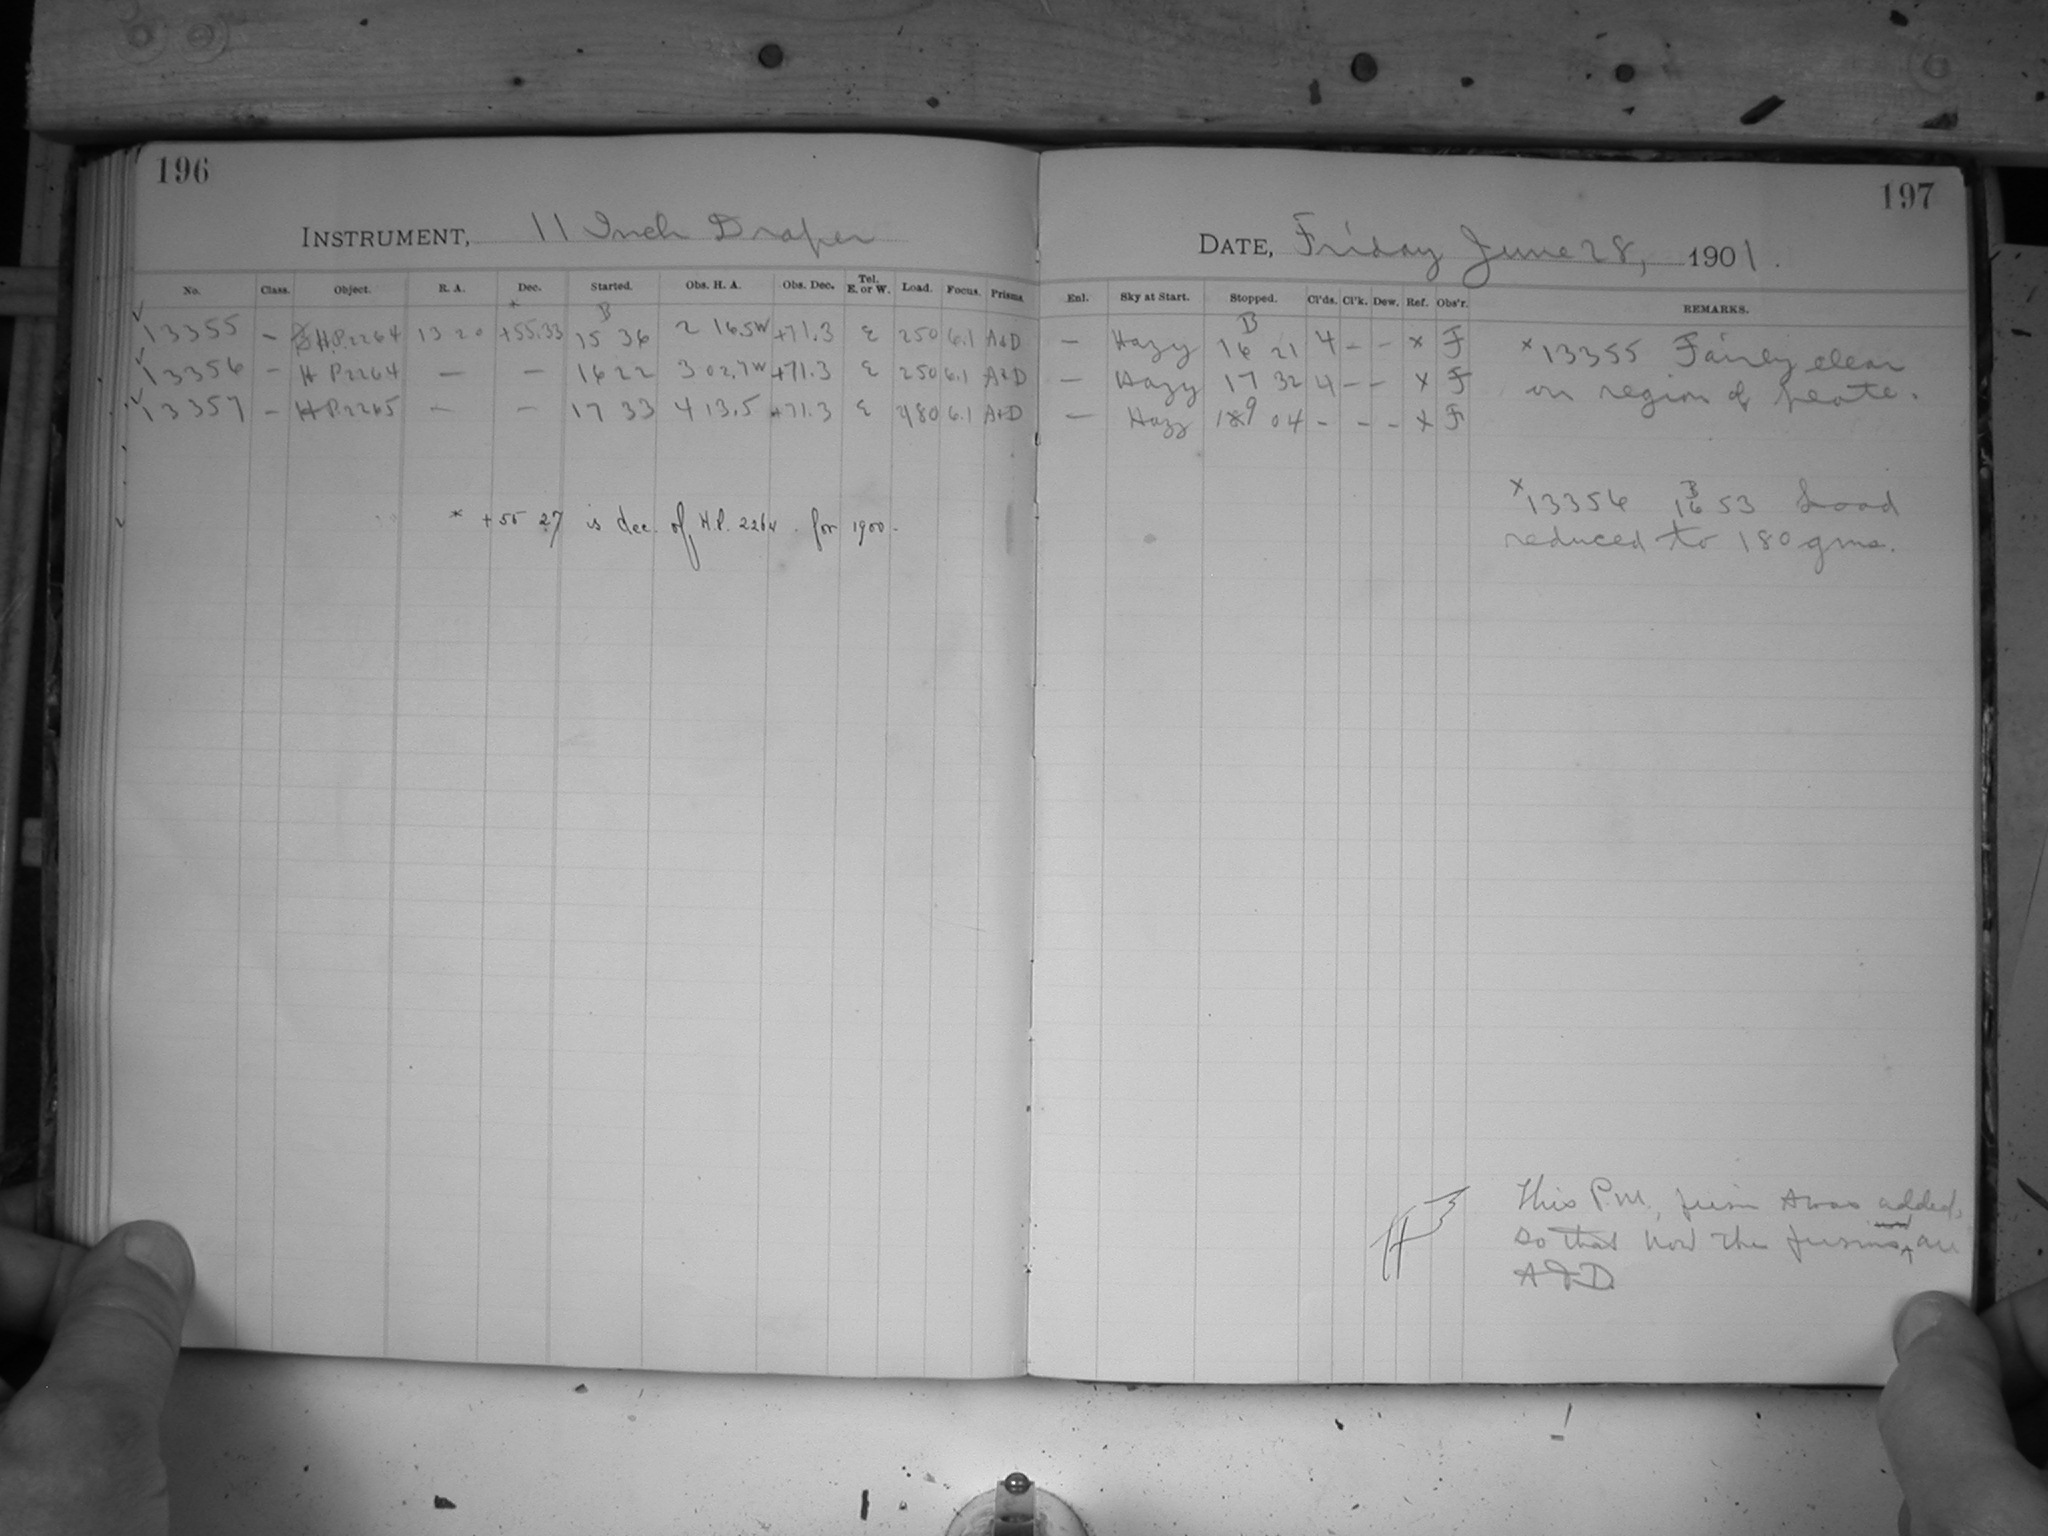 196
INSTRUMENT, 11 Inch Draper
No. Class. Object. R. A. Dec. Started. Obs. H. A. Obs. Dec. Tel. E. or W. Load. Focus. Prisms.
13355 – H.P. 2264 13 20 +55.33 15 36 2 16.5W +71.3 E 250 6.1 A+D
13356 – H P 2264 — — 16 22 3 02.7W +71.3 E 250 6.1 A+D
13357 – H P. 2265 — — 17 33 4 13.5 +71.3 E 180 6.1 A+D
* +55 27 is dec. of H.P. 2264. for 1900.
197
DATE, Friday June 28, 1901.
Enl. Sky at Start. Stopped. Cl'ds. Cl'k. Dew. Ref. Obs'r. REMARKS.
— Hazy 16 21 4 – – x F
— Hazy 17 32 4 – – x F
— Hazy 19 04 – – – x F
x 13355 Fairly clear
in region of plate.
x 13356 B 16 53 Load
reduced to 180 gms.
This P.M., prism A was added,
so that now the prisms are
A & D.